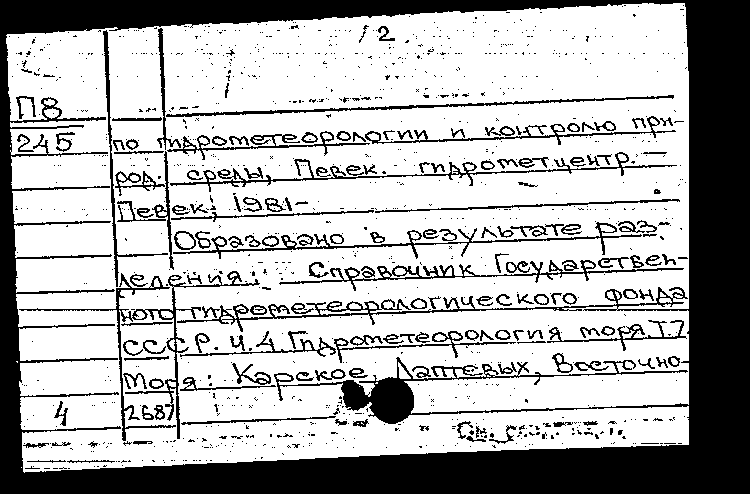 /2
П8
245
по гидрометеорологии и контролю при-
род. среды, Певек. гидрометцентр. —
Певек, 1981-
Образовано в результате раз-
деления: Справочник Государствен-
ного гидрометеорологического фонда
СССР. Ч.4. Гидрометеорология моря. Т.7.
Моря: Карское, Лаптевых, Восточно-
4
2687